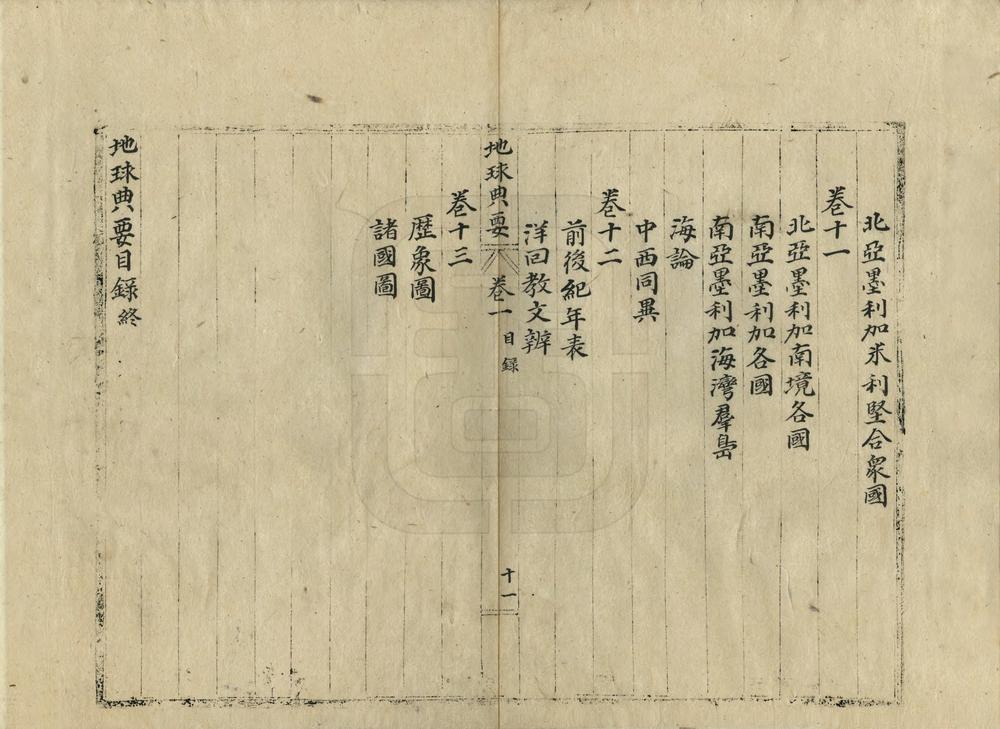 北亞墨利加米利堅合衆國
卷十一
北亞墨利加南境各國
南亞墨利加各國
南亞墨利加海灣羣島
海論
中西同異
卷十二
前後紀年表
洋回教文辨
地球典要 卷一 目録 十一
卷十三
歷象圖
諸國圖
地球典要目録終